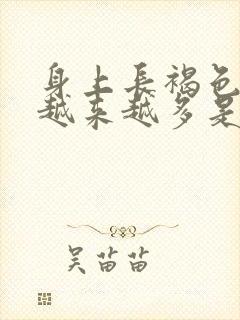 身上長褐色
越来越多是
吴苗苗